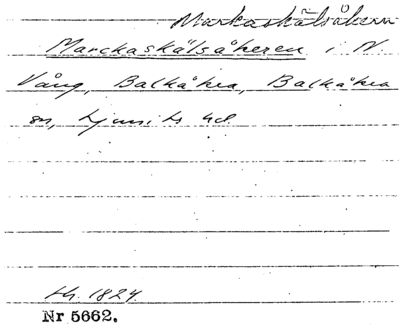 Markaskälsåkern
Marckaskälsåkeren i N.
Vång, Balkåkra, Balkåkra
sn, Ljunits hd.
th. 1824
Nr 5662.